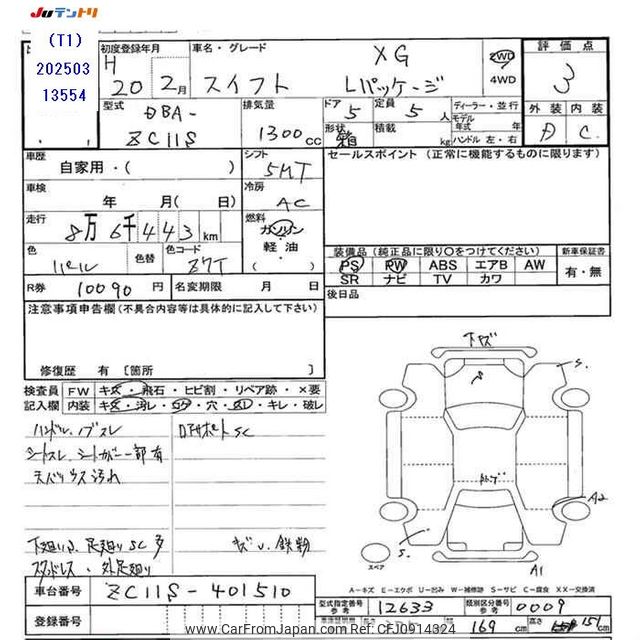 JUテントリ
(T1)
202503
13554
初度登録年月 車名・グレード
H 20 2月 スイフト XG Lパッケージ
2WD
4WD
評価点
3
外装 内装
D C
型式
DBA-
ZC11S
排気量
1300cc
ドア 5
形状 箱
定員 5人
積載 kg
ディーラー・並行
モデル年式 年式
ハンドル 左・右
車歴
自家用・( )
シフト
5MT
セールスポイント (正常に機能するものに限ります)
車検
年 月( 日)
冷房
AC
走行
8万6千443km
燃料
ガソリン
軽・油
( )
色 色替 色コード
パール ZJT
装備品 (純正品に限り○をつけてください) 新車保証書
PS PW ABS エアB AW
SR ナビ TV カワ
有・無
R券 10090円 名変期限 月 日
後日品
注意事項申告欄(不具合内容等は具体的に記入して下さい)
修復歴 有 [箇所 ]
検査員記入欄
FW キズ・飛石・ヒビ割・リペア跡・×要
内装 キズ・汚レ・コゲ・穴・スレ・キレ・破レ
ハンドル、ノブスレ
シートスレ、シートカバー一部有
天バックス汚れ
ロアサポートSC
下廻りS、足廻りSC多
スタッドレス
キズU、鉄粉
下キズ
S
A2
S
A1
スペア
車台番号 ZC11S-401510
登録番号
A-キズ E-エクボ U-凹み W-補修跡 S-サビ C-腐食 XX-交換済
型式指定番号 12633 類別区分番号 0009
169cm
高さ 151cm
www.CarFromJapan.com Ref: CFJ0914324